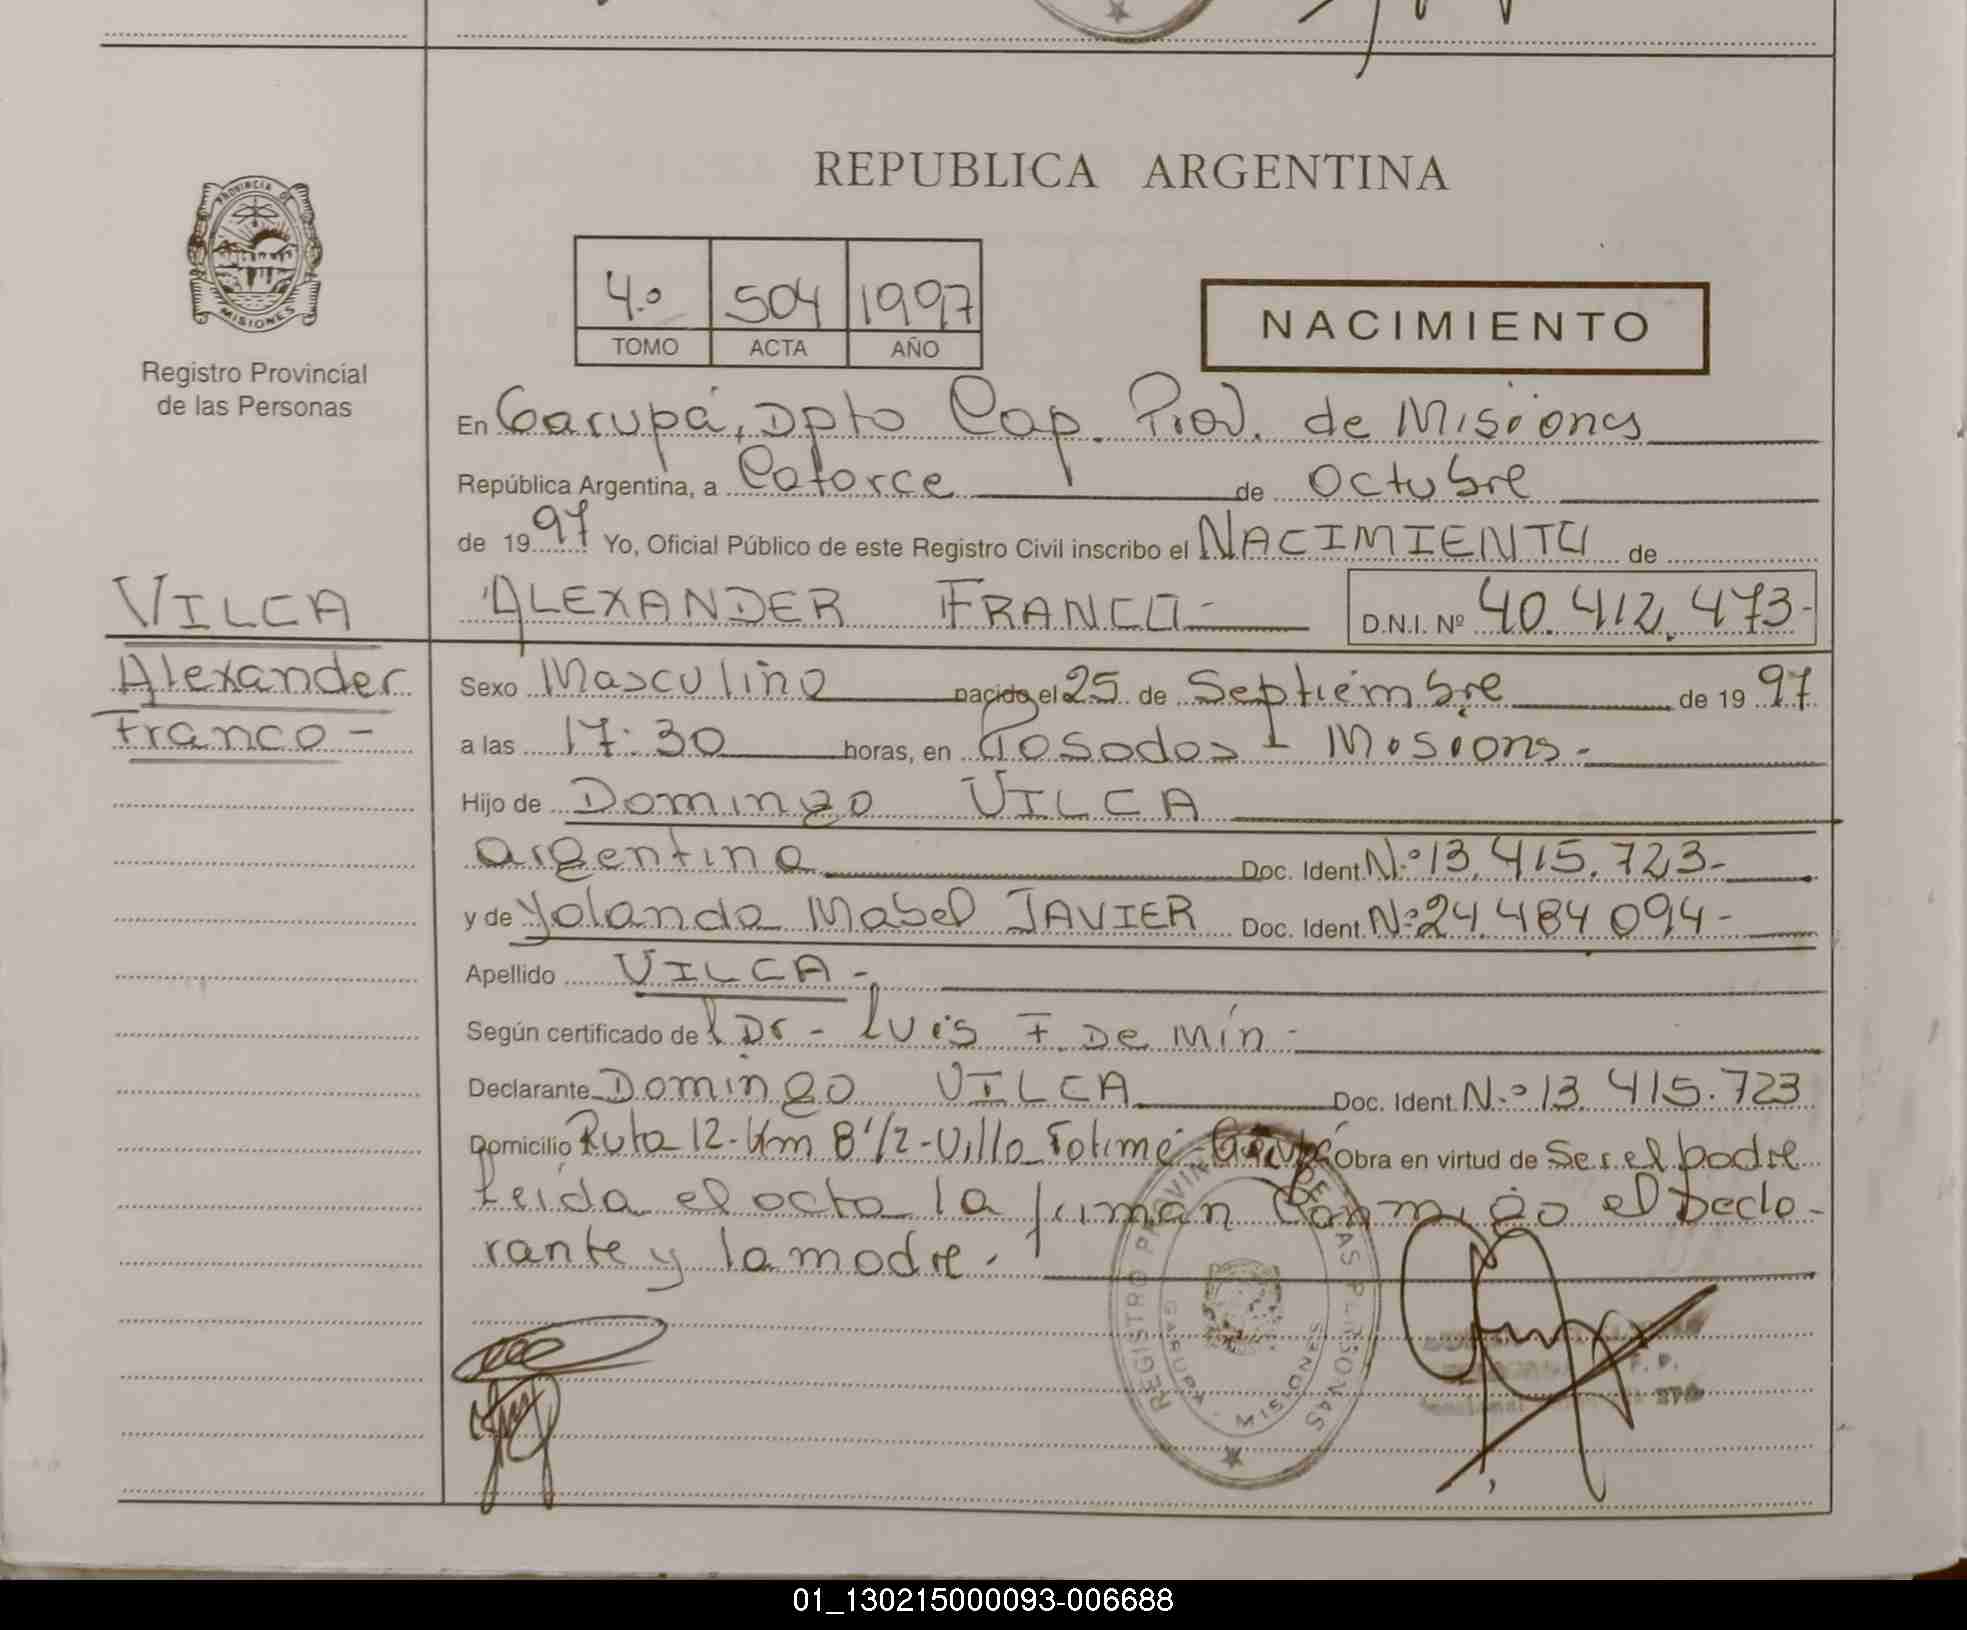 PROVINCIA DE
MISIONES
Registro Provincial
de las Personas
VILCA
Alexander
Franco -
REPUBLICA ARGENTINA
4.º 504 1997
TOMO ACTA AÑO
NACIMIENTO
En Garupá, Dpto Cap. Prov. de Misiones
República Argentina, a Catorce de Octubre
de 1997 Yo, Oficial Público de este Registro Civil inscribo el NACIMIENTO de
ALEXANDER FRANCO- D.N.I. Nº 40.412.473-
Sexo Masculino nacido el 25 de Septiembre de 1997
a las 17:30 horas, en Posadas - Misions.
Hijo de Domingo VILCA
argentino Doc. Ident. N.º 13.415.723-
y de Yolanda Mabel JAVIER Doc. Ident. Nº 24.484.094-
Apellido VILCA -
Según certificado del Dr - Luis F. De Min -
Declarante Domingo VILCA Doc. Ident. N.º 13.415.723
Domicilio Ruta 12-Km 8 1/2-Villa Fatimé-Garupá Obra en virtud de Ser el padre
Leida el acta la firman Conmigo el Decla-
rante y la madre.
REGISTRO PROVINCIAL DE LAS PERSONAS
GARUPA - MISIONES
01_130215000093-006688